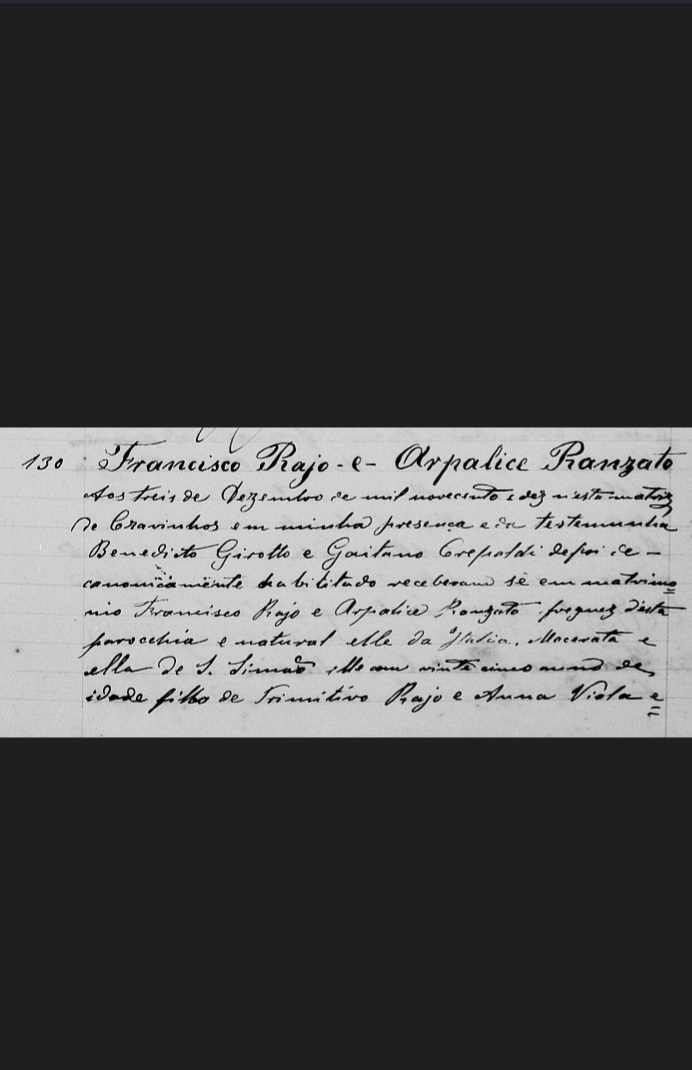 130 Francisco Rajo - e - Arpalice Ranzato
Aos treis de Dezembro de mil novecento e dez n'esta matriz
de Cravinhos em minha presença e da testemunha
Benedicto Girotto e Gaitano Crepaldi depoi de -
canonicamente habilitado receberam se em matrimo
nio Francisco Rajo e Arpalice Ranzato freguez d'esta
parocchia e natural elle da Italia. Macerata e
ella de S. Simaõ elle com vinte cinco anno de
idade filho de Primitivo Rajo e Anna Viola e